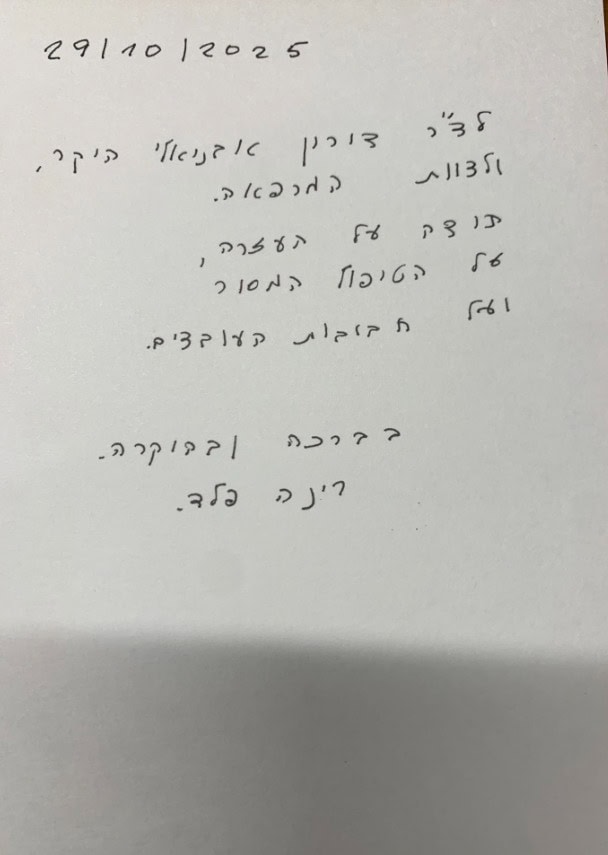 29/10/2025
לד"ר דורון אבניאלי היקר,
ולצוות המרפאה.
תודה על העזרה,
על הטיפול המסור
ועל חביבות העובדים.
בברכה ובהוקרה.
רינה פלד.